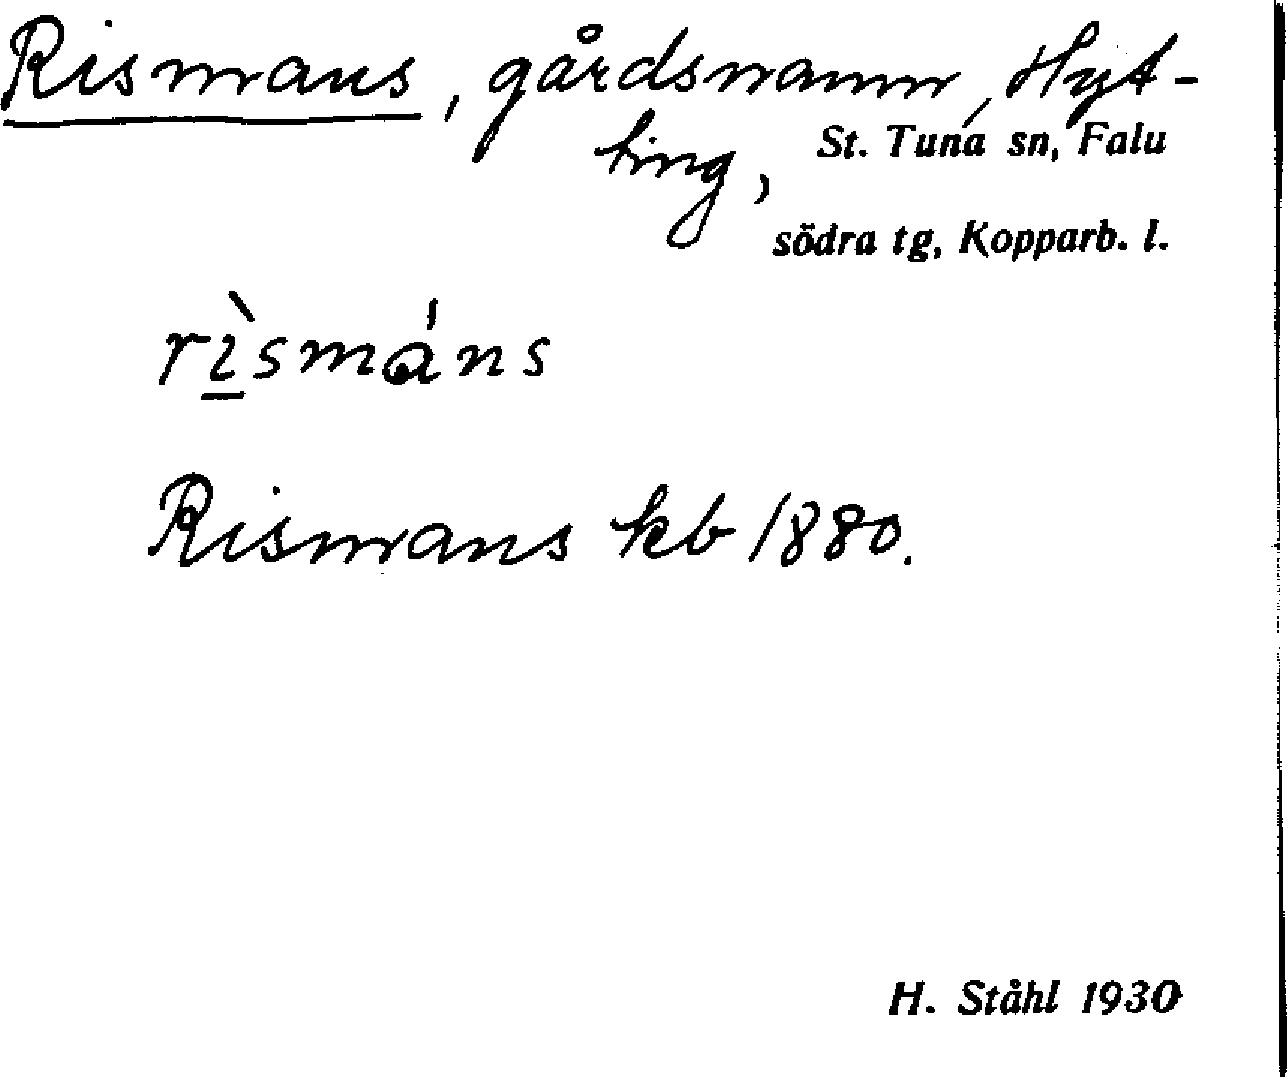 Rismans, gårdsnamn, Hyt-
ting, St. Tuna sn, Falu
södra tg, Kopparb. l.
rı̲̀smáns
Rismans kb 1880.
H. Ståhl 1930